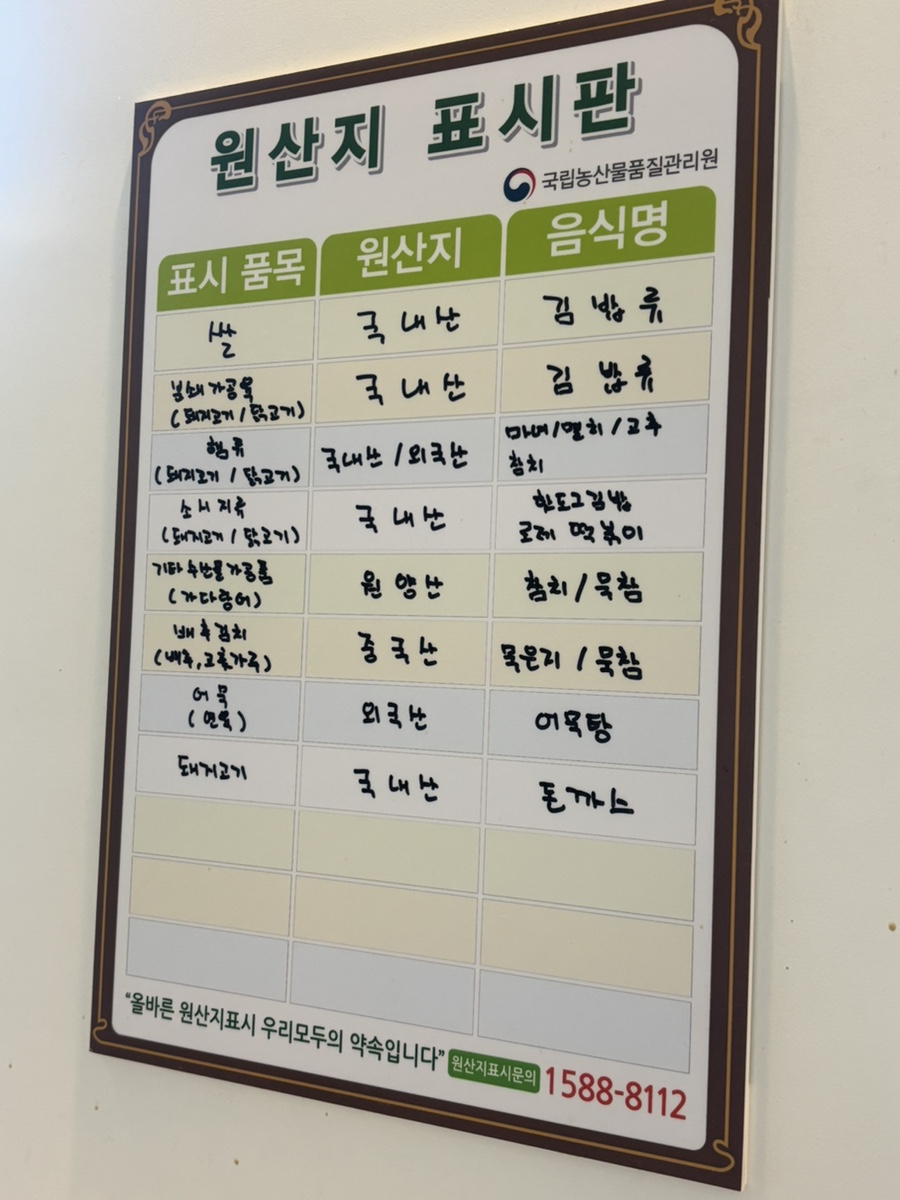 원산지 표시판
국립농산물품질관리원
표시 품목 원산지 음식명
쌀 국내산 김밥류
분쇄가공육 국내산 김밥류
(돼지고기/닭고기)
햄류 국내산/외국산 마녀/멸치/고추
(돼지고기/닭고기) 참치
소시지류 국내산 핫도그김밥
(돼지고기/닭고기) 로제 떡볶이
기타수산물가공품 원양산 참치/묵참
(가다랑어)
배추김치 중국산 묵은지/묵참
(배추,고춧가루)
어묵 외국산 어묵탕
(연육)
돼지고기 국내산 돈까스
“올바른 원산지표시 우리모두의 약속입니다”
원산지표시문의 1588-8112